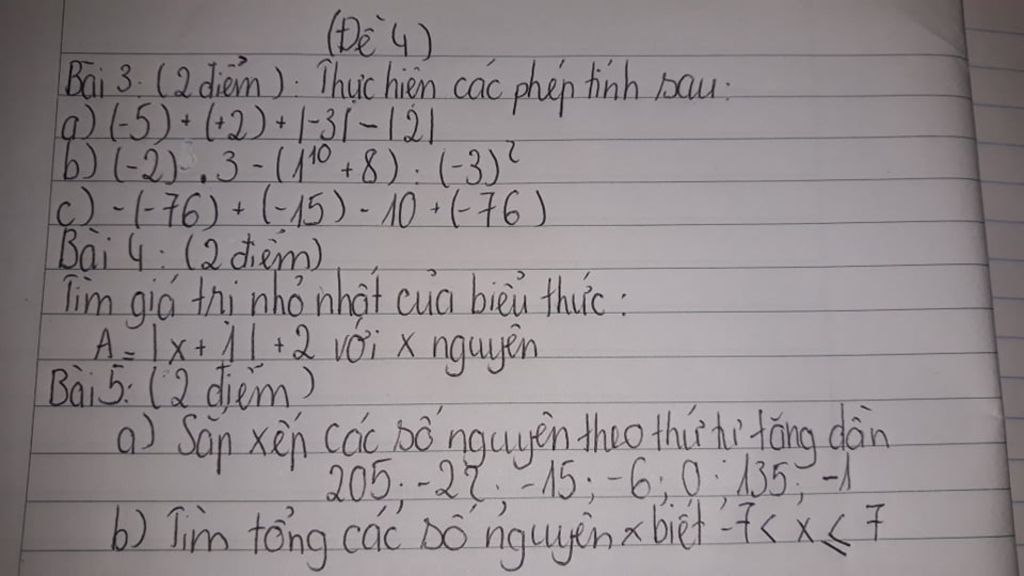 (Đề 4)
Bài 3: (2 điểm): Thực hiện các phép tính sau:
a) (-5) + (+2) + |-3| - |2|
b) (-2) . 3 - (1¹⁰ + 8) : (-3)²
c) - (-76) + (-15) - 10 + (-76)
Bài 4: (2 điểm)
Tìm giá trị nhỏ nhất của biểu thức:
A = |x + 1| + 2 với x nguyên
Bài 5: (2 điểm)
a) Sắp xếp các số nguyên theo thứ tự tăng dần
205; -27; -15; -6; 0; 135; -1
b) Tìm tổng các số nguyên x biết -7 < x ≤ 7